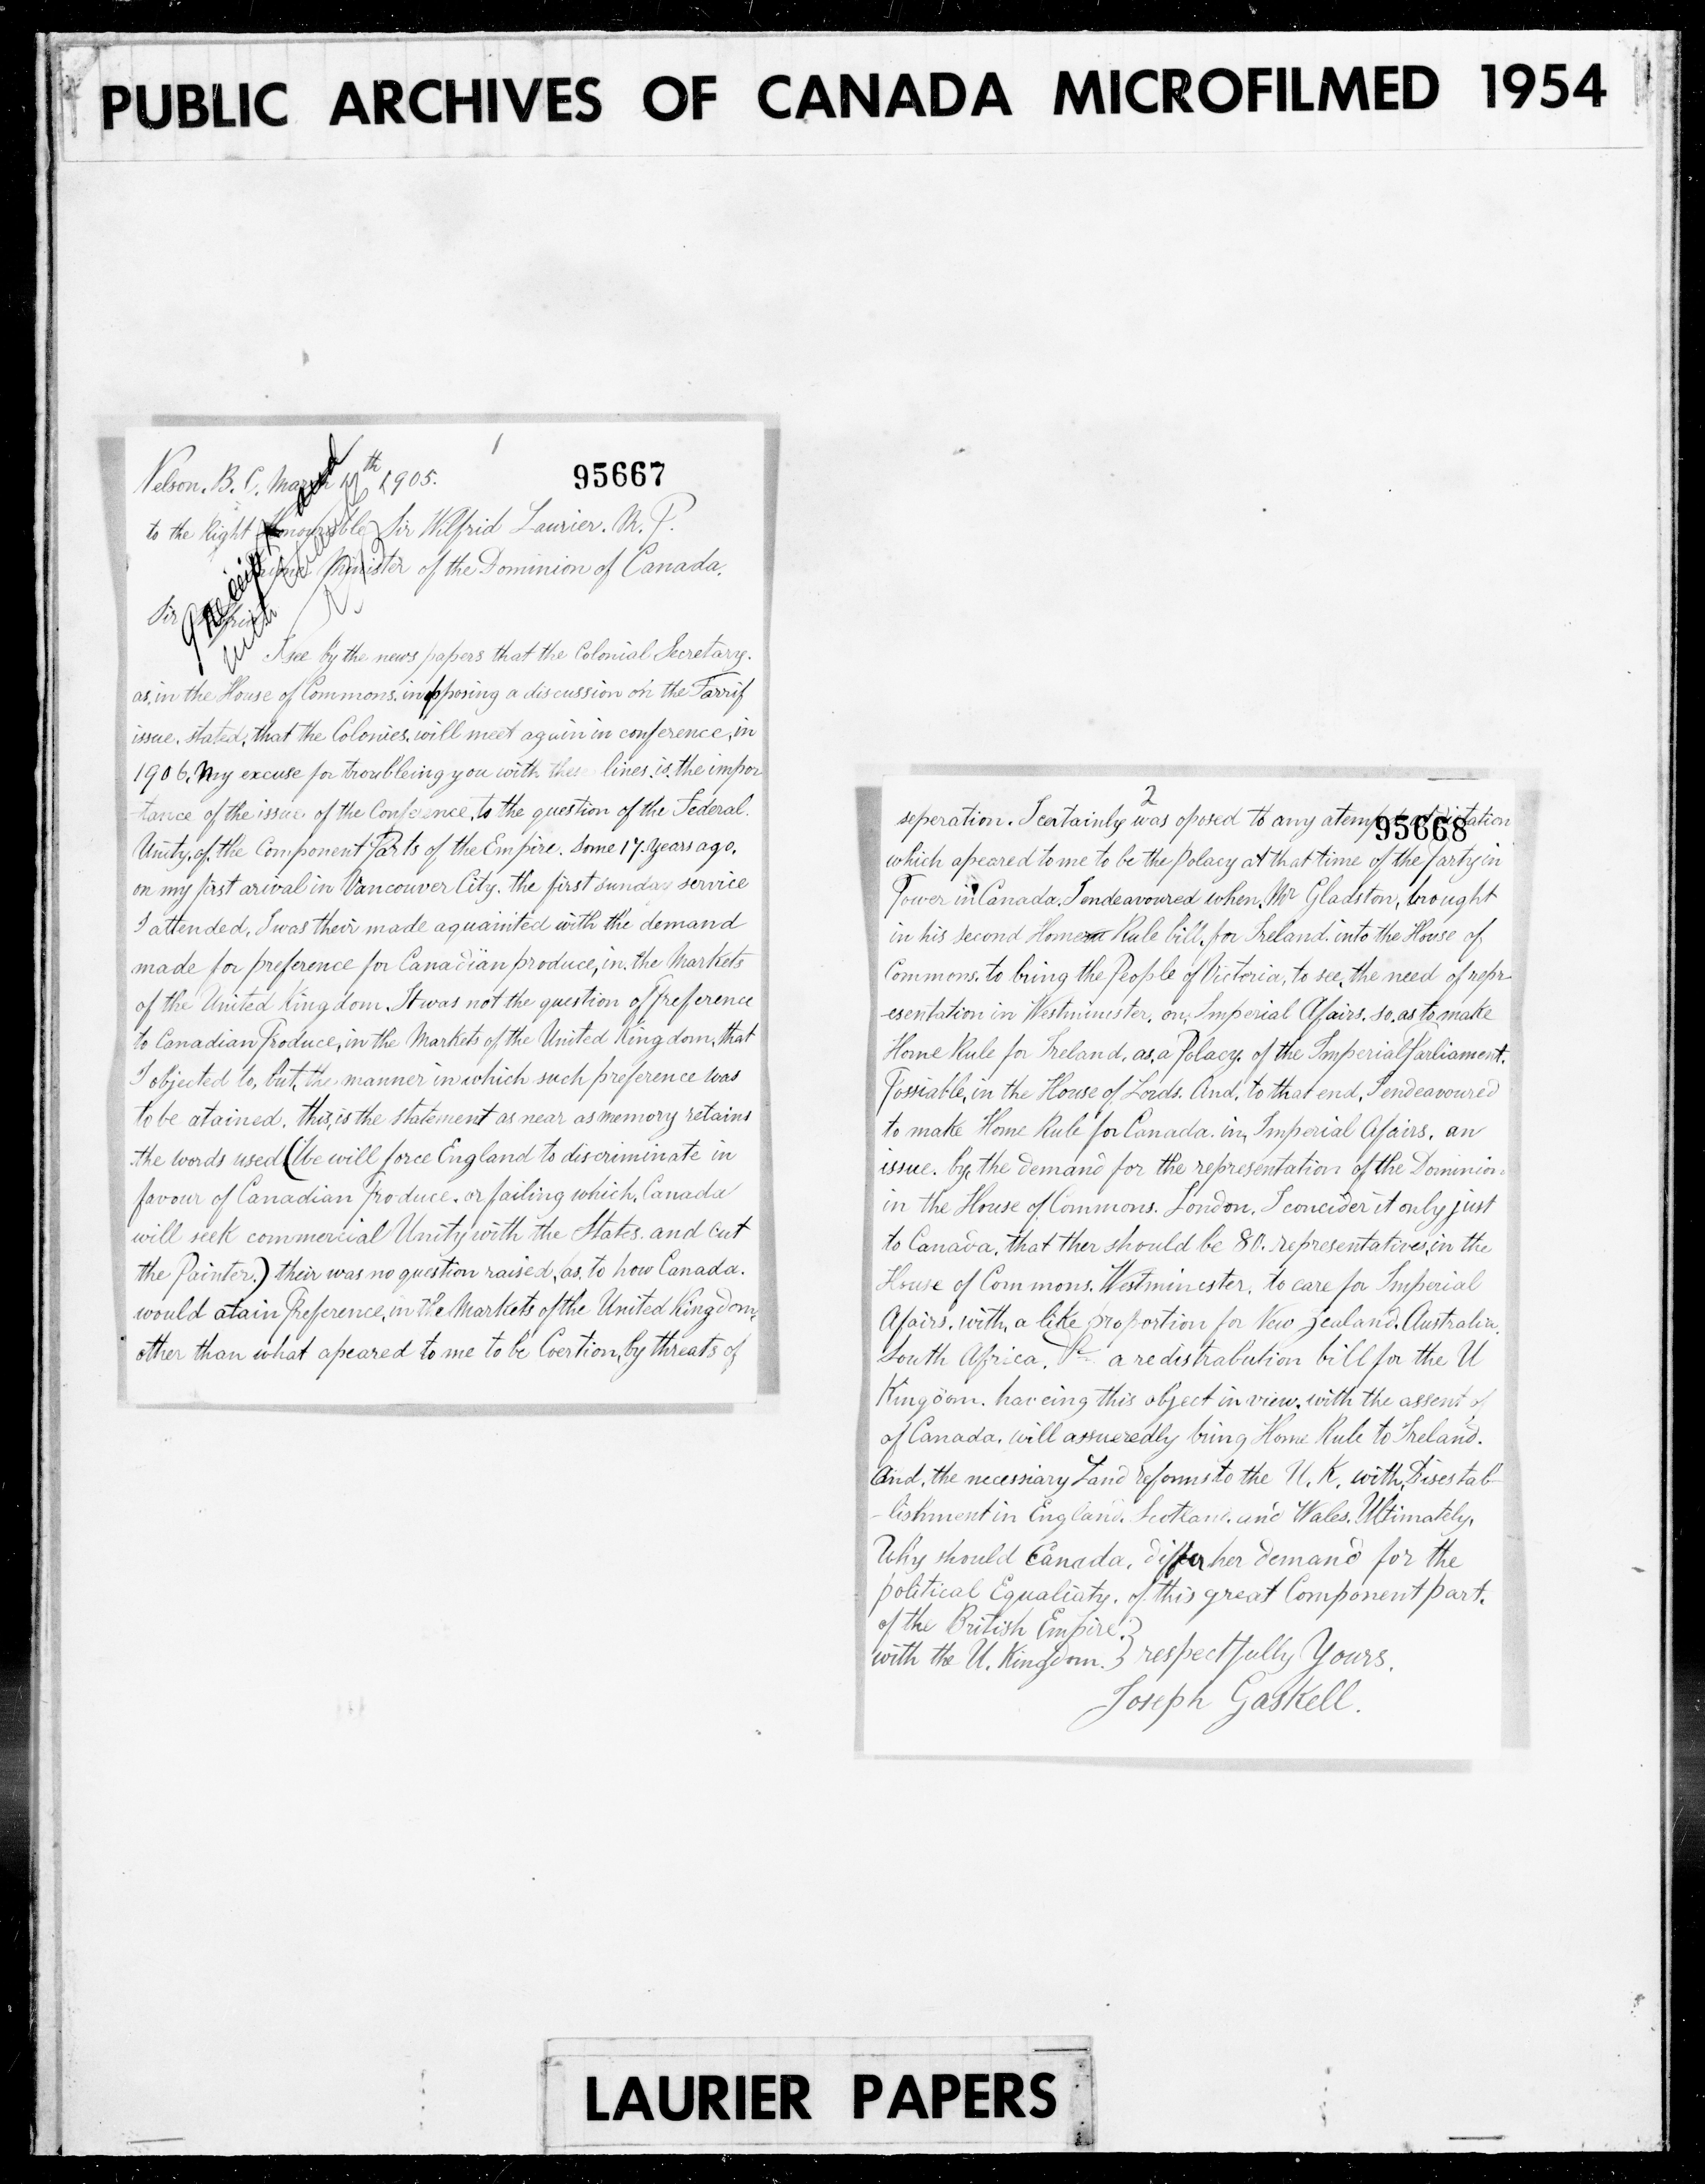 PUBLIC ARCHIVES OF CANADA MICROFILMED 1954
1
95667
Nelson. B. C. March th 1905.
to the Right Honourable Sir Wilfrid Laurier. M. P.
Prime Minister of the Dominion of Canada.
Sir
I see by the news papers that the Colonial Secretary.
as, in the House of Commons. in opposing a discussion on the Tarrif
issue. stated, that the Colonies, will meet again in conference, in
1906. My excuse for troubleing you with these lines. is, the impor
-tance of the issue of the Conference, to the question of the Federal.
Unity, of, the Component Parts of the Empire. Some 17. years ago.
on my first arival in Vancouver City. the first sunday service
I attended, I was their made aquainted with the demand
made for preference for Canadian produce, in the Markets
of the United Kingdom. It was not the question of preference
to Canadian Produce, in the Markets of the United Kingdom, that
I objected to, but, the manner in which such preference was
to be atained. this, is the statement as near as memory retains
the words used (We will force England to discriminate in
favour of Canadian Produce. or failing which, Canada
will seek commercial Unity with the States. and cut
the Painter.) their was no question raised, as, to how Canada.
would atain Preference, in the Markets of the United Kingdom,
other than what apeared to me to be Coertion, by threats of
2
95668
seperation. I certainly was oposed to any atempt at dictation
which apeared to me to be the Polacy at that time of the party in
Power in Canada. I endeavoured when, Mr Gladston, brought
in his second Home Rule bill, for Ireland. into the House of
Commons. to bring the People of Victoria, to see, the need of repr-
-esentation in Westminister, on, Imperial Afairs. so, as to make
Home Rule for Ireland, as, a Polacy. of the Imperial Parliament.
Possiable, in the House of Lords. And, to that end, I endeavoured
to make Home Rule for Canada. in, Imperial Afairs. an
issue. by, the demand for the representation of the Dominion
in the House of Commons. London. I concider it only just
to Canada, that ther should be 80. representatives, in the
House of Commons. Westminester. to care for Imperial
Afairs. with, a like proportion for New Zealand. Australia.
South Africa. a redistrabution bill for the U
Kingdom. haveing this object in view. with the assent of
of Canada. will assueredly bring Home Rule to Ireland.
And, the necessiary Land reforms to the U. K. with, Disestab-
-lishment in England. Scotland. and Wales. Ultimately.
Why should Canada, differ her demand for the
political Equaliaty. of this great Component part.
of the British Empire.
with the U. Kingdom. } respectfully Yours.
Joseph Gaskell.
LAURIER PAPERS